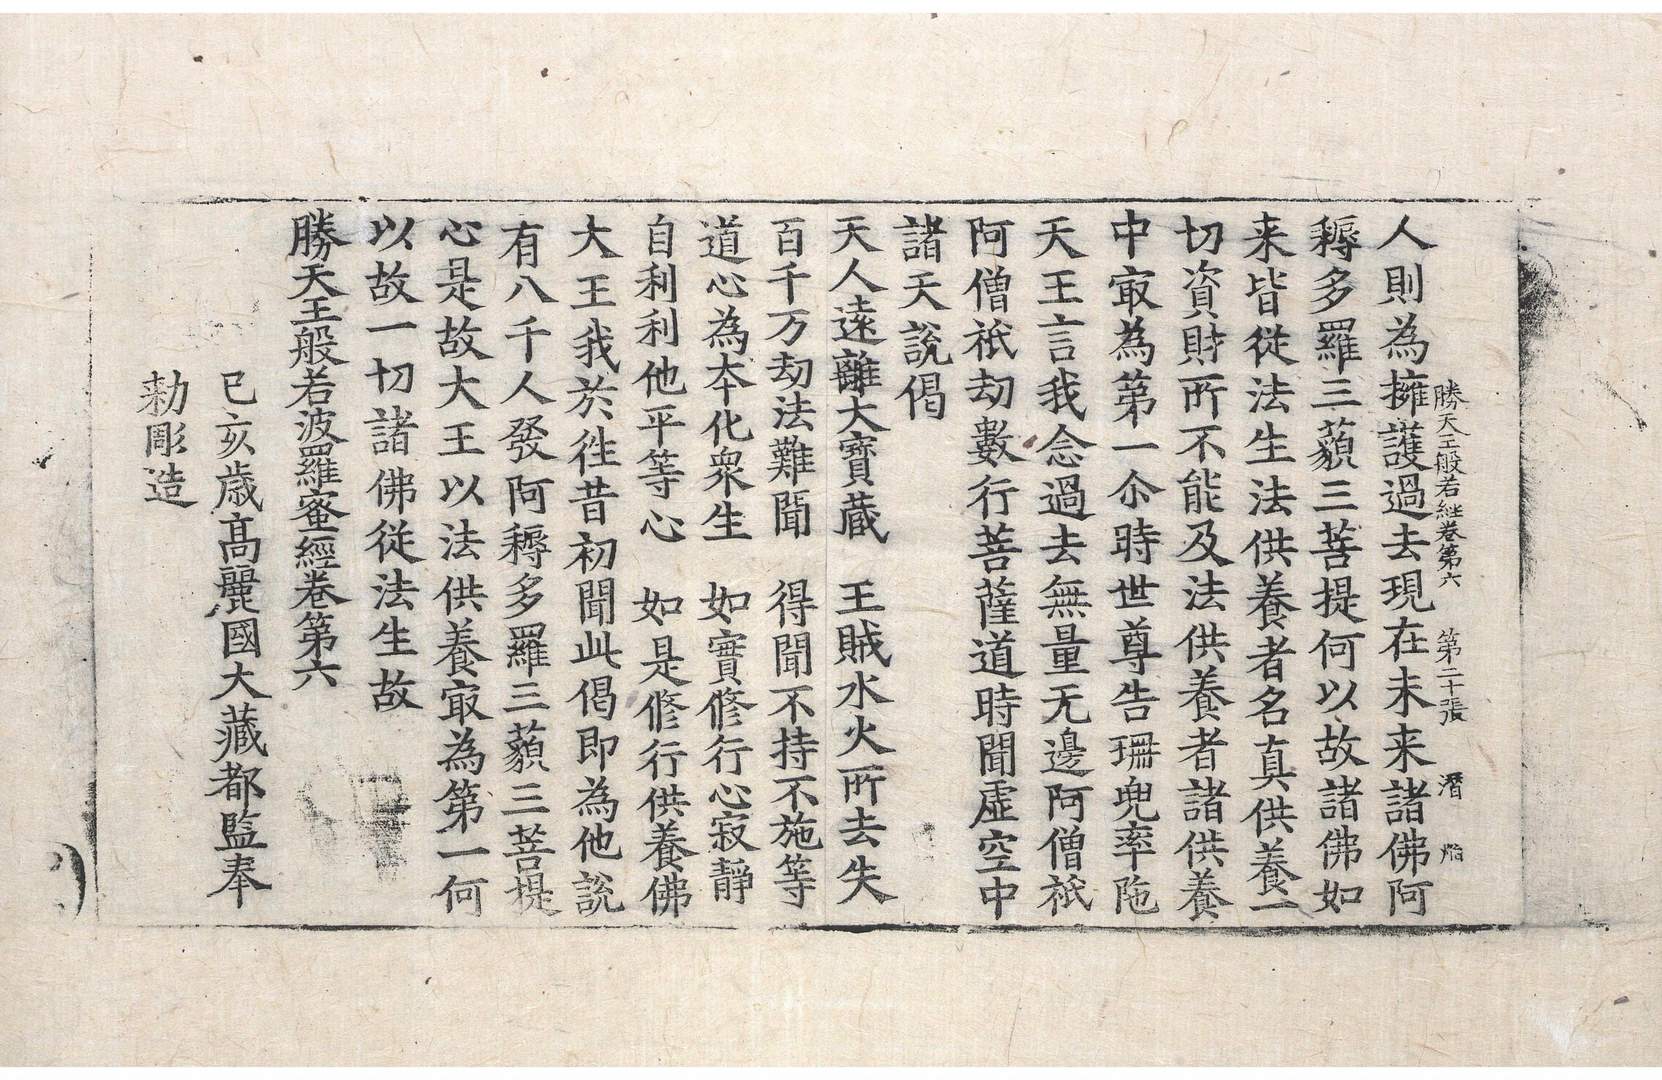 勝天王般若經卷第六 第二十張 潛
人則為擁護過去現在未来諸佛阿
耨多羅三藐三菩提何以故諸佛如
来皆従法生法供養者名真供養一
切資財所不能及法供養者諸供養
中㝡為第一尒時世尊告珊兜率陁
天王言我念過去無量无邊阿僧祇
阿僧祇劫數行菩薩道時聞虛空中
諸天說偈
天人遠離大寶蔵 王賊水火所去失
百千万劫法難聞 得聞不持不施等
道心為夲化衆生 如實修行心寂靜
自利利他平等心 如是修行供養佛
大王我於徃昔初聞此偈即為他說
有八千人發阿耨多羅三藐三菩提
心是故大王以法供養㝡為第一何
以故一切諸佛従法生故
勝天王般若波羅蜜經卷第六
己亥歳髙麗國大藏都監奉
勅彫造